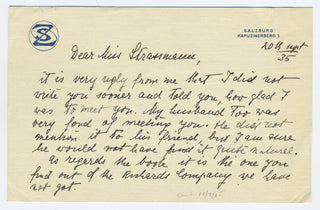 SZ
SALZBURG
KAPUZINERBERG 5
20th sept
35
Dear Miss Strassmann,
it is very ugly from me that I did not
write you sooner and told you, how glad I
was to meet you. My husband too was
very fond of meeting you. He did not
mention it to his friend but I am sure
he would not have find it quite natural.
As regards the book it is the one you
find out of the Richards Company we have
not got.